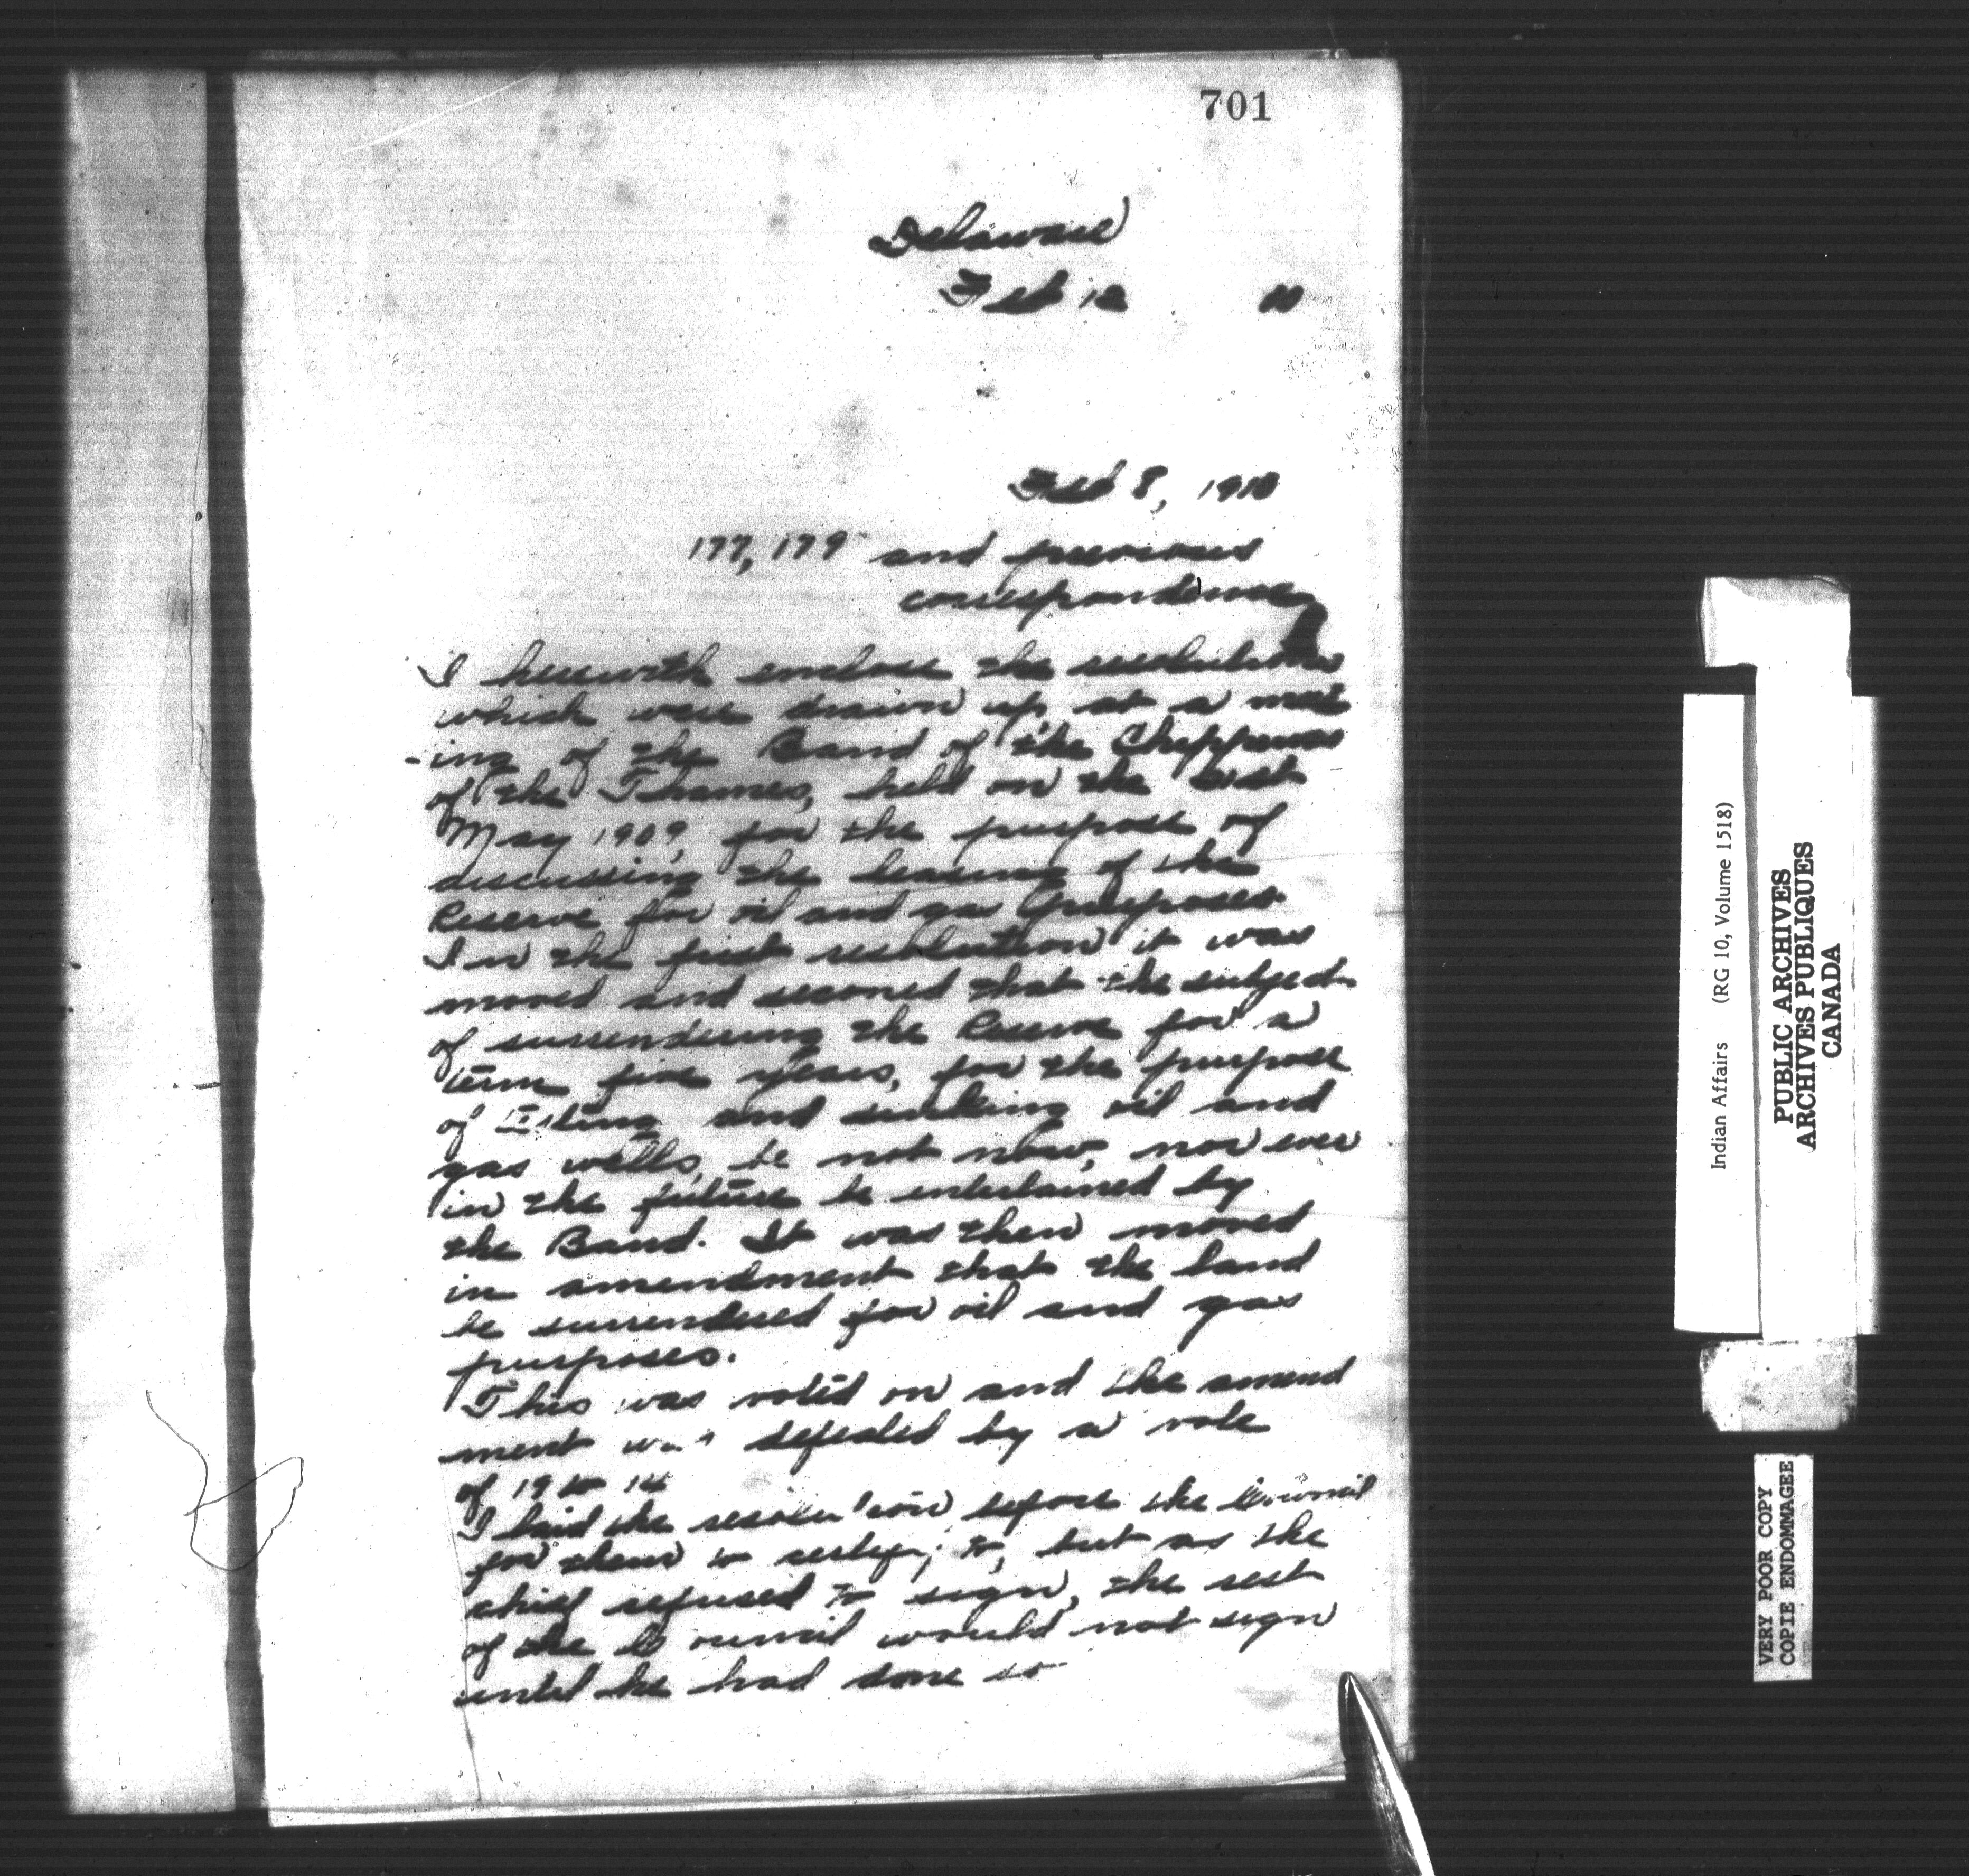 701
Delaware
Feb 12 10
Feb 8, 1910
177,179 and previous
correspondence
I herewith enclose the resolutions
which were drawn up at a meet
-ing of the Band of the Chippewas
of the Thames, held on the
May 1909, for the purpose of
discussing the leasing of the
Reserve for oil and gas purposes
In the first resolution it was
moved and seconed that the subject
of surrendering the Reserve for a
term five years, for the purpose
of and sinking oil and
gas wells, be not now, nor ever
in the future be entertained by
the Band. It was then moved
in amendment that the land
be surrendered for oil and gas
purposes.
This was voted on and the amend
ment was defeated by a vote
of 19 to 14
I laid the resolution before the Council
for them to certify to, but as the
chief refused to sign, the rest
of the Council would not sign
until he had done so
Indian Affairs (RG 10, Volume 1518)
PUBLIC ARCHIVES
ARCHIVES PUBLIQUES
CANADA
VERY POOR COPY
COPIE ENDOMMAGEE